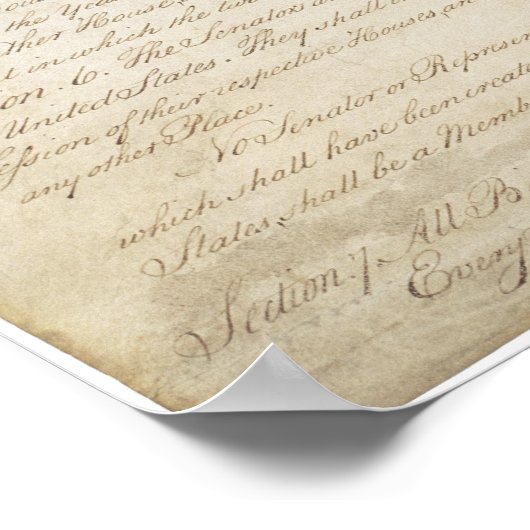 the Yeas
ther House
t in which the two
on . 6. The Senator
United States. They shall
ession of their respective Houses, an
any other Place.
No Senator or Represen
which shall have been create
States shall be a Memb
Section. 7. All B
Every